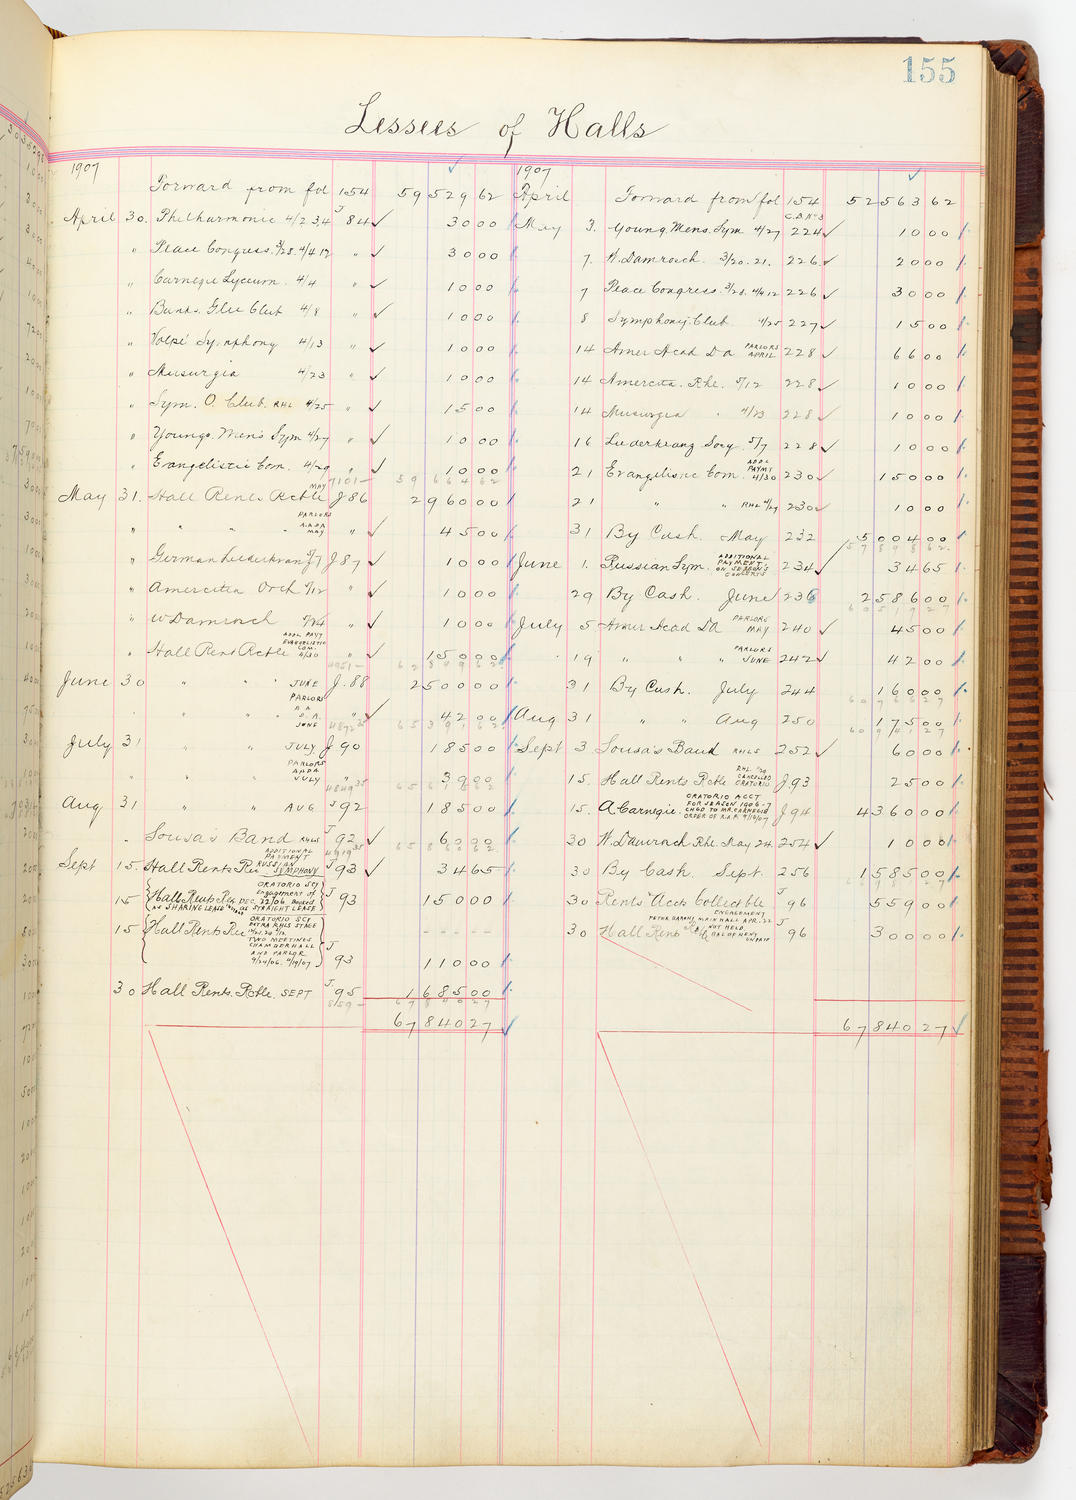 155
Lessees of Halls
1907
Forward from fol 154 59529 62
April 30. Philharmonic 4/2 3,4 J 84 ✓ 30 00
" Peace Congress. 3/28. 4/4 12 " ✓ 30 00
" Carnegie Lyceum. 4/4 " ✓ 10 00
" Bank. Glee Club 4/8 " ✓ 10 00
" Volpe Symphony 4/13 " ✓ 10 00
" Musurgia 4/23 " ✓ 10 00
" Sym. O. Club. RHL 4/25 " ✓ 15 00
" Youngs. Men's Sym 4/27 " ✓ 10 00
" Evangelistic Com. 4/29 " ✓ 10 00
7101— 59664 62
May 31. Hall Rents Rctble MAY J 86 2960 00
" " " " PARLORS A.A.D.A MAY " ✓ 45 00
" German Liederkranz 5/7 J 87 ✓ 10 00
" Amercita Orch 5/12 " ✓ 10 00
" W Damrosch " ✓ 10 00
" Hall Rent Rctble ADDL PAYT EVANGELISTIC COM. 4/30 " ✓ 150 00
4951— 62849 62
June 30 " " " JUNE J. 88 2500 00
" " " PARLORS A A D. A. JUNE " ✓ 42 00
4872 35 65391 62
July 31 " " JULY J 90 185 00
" " " PARLORS AADA JULY " 39 00
4849 35 65615 62
Aug 31 " " AUG J 92 185 00
" Sousa's Band RHLS J 92 ✓ 60 00
4919 35 65860 62
Sept 15. Hall Rents Rec ADDITIONAL PAYMENT RUSSIAN SYMPHONY J 93 ✓ 34 65
15 Hall Rents Rec ORATORIO SCY Engagement of DEC. 22/06 Booked AS SHARING LEASE AS STRAIGHT LEASE J 93 150 00
15 Hall Rents Rec ORATORIO SCY EXTRA RHLS STAGE TWO MEETINGS CHAMBER HALL AND PARLOR 9/24/06. 2/19/07 J 93 110 00
30 Hall Rents. Rctble. SEPT J 95 1685 00
859— 67840 27
67840 27 ✓
1907
April Forward from fol 154 52563 62
May 3. Young. Mens. Sym 4/27 C.B. No 3 224 ✓ 10 00
7. W. Damrosch. 3/20. 21. 226 ✓ 20 00
7 Peace Congress. 3/28. 4/4 12 226 ✓ 30 00
8 Symphony. Club 4/25 227 ✓ 15 00
14 Amer Acad D a PARLORS APRIL 228 ✓ 66 00
14 Amercita. Rhl. 5/12 228 ✓ 10 00
14 Musurgia " 4/23 228 ✓ 10 00
16 Liederkranz Socy. 5/7 228 ✓ 10 00
21 Evangelistic Com ADDL PAYMT 4/30 230 ✓ 150 00
21 " " RHL 4/29 230 ✓ 10 00
31 By Cash. May 232 5004 00
57898 62
June 1. Russian Sym. ADDITIONAL PAYMENT. ON SEASON'S CONCERTS 234 ✓ 34 65
29 By Cash. June 236 2586 00
60519 27
July 5 Amer Acad Da PARLORS MAY 240 ✓ 45 00
19 " " " PARLORS JUNE 242 ✓ 42 00
31 By Cash. July 244 160 00
Aug 31 " " Aug 250 175 00
60941 27
Sept 3 Sousa's Band RHLS 252 ✓ 60 00
15. Hall Rents Rctble RHL CANCELLED ORATORIO J. 93 25 00
15. A. Carnegie. ORATORIO ACCT FOR SEASON 1906-7 CHGD TO MR. CARNEGIE ORDER OF R.A.F. 9/12/07 J 94 4360 00
30 W. Damrosch Rhl. May 24. 254 ✓ 10 00
30 By Cash. Sept. 256 1585 00
30 Rents Accts Collectible J 96 559 00
30 Hall Rents Rctble ENGAGEMENT MAIN HALL APR. 22 NOT HELD BAL OF RENT UNPAID J 96 300 00
67840 27 ✓